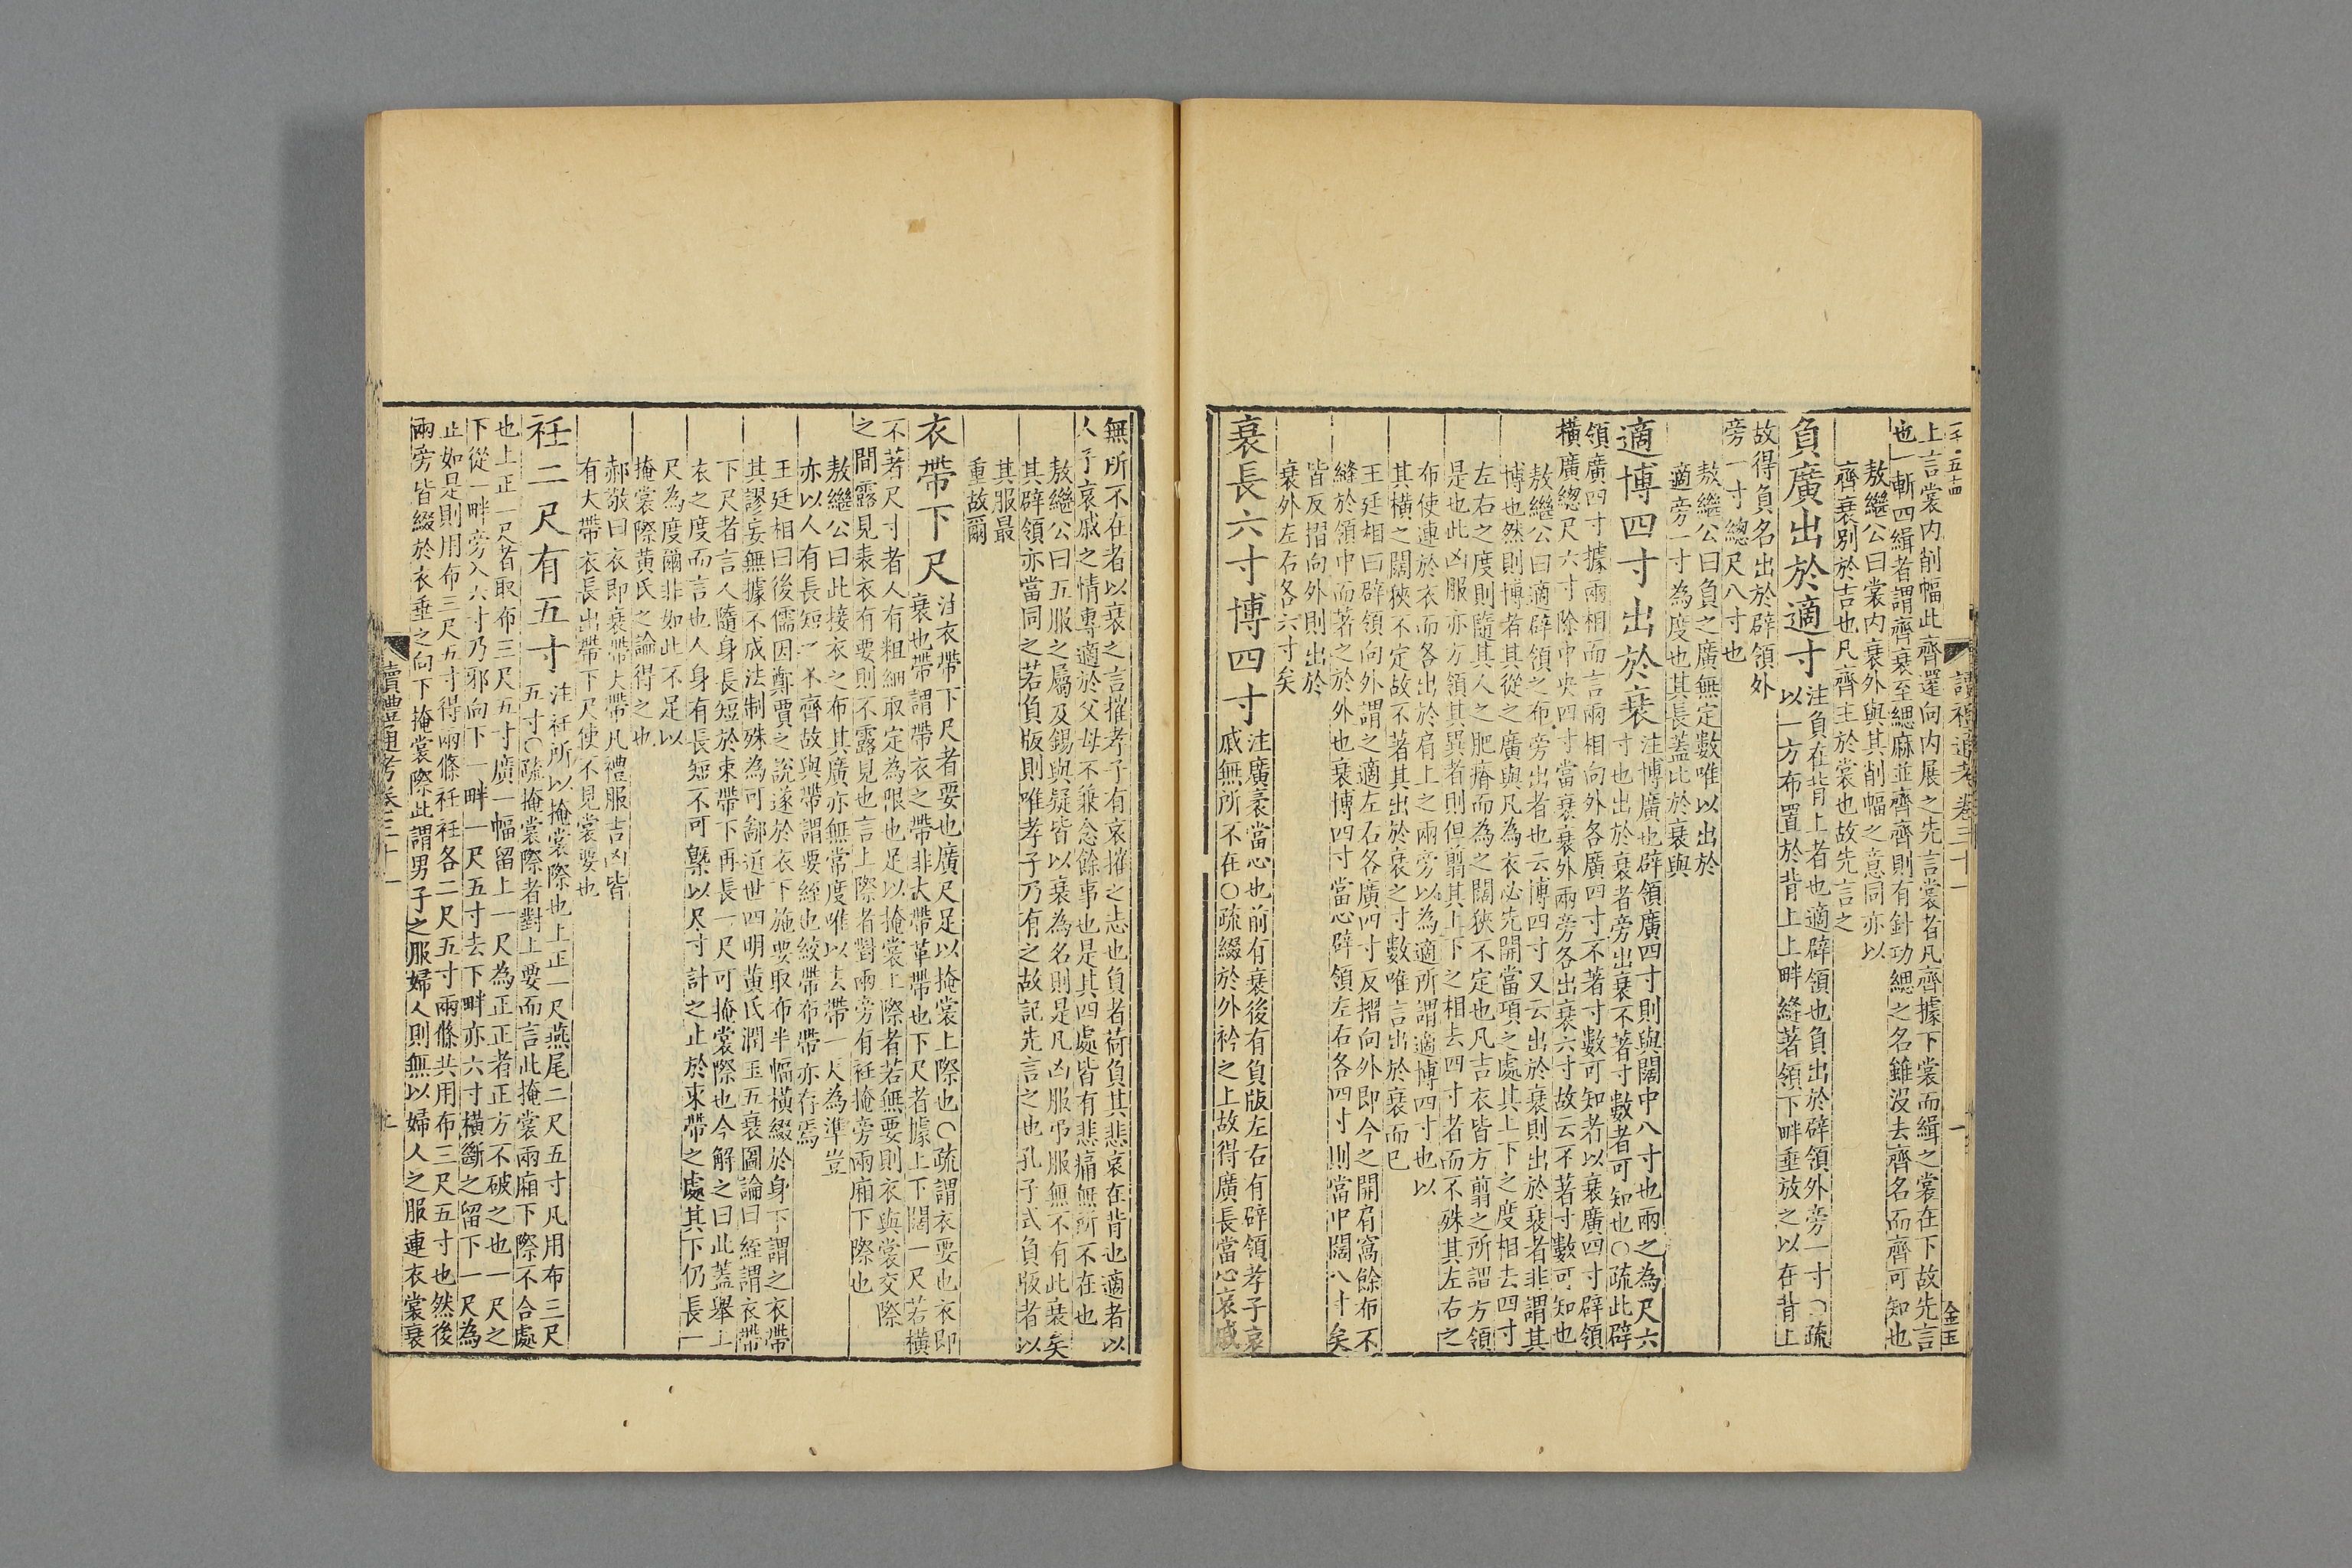 讀禮通考卷三十一
金玉
上言裳内削幅此齊還向内展之先言裳者凡齊據下裳而緝之裳在下故先言
也一斬四緝者謂齊衰至緦麻並齊齊則有針功緦之名雖没去齊名而齊可知也
敖繼公曰裳内衰外與其削幅之意同亦以
齊衰别於吉也凡齊主於裳也故先言之
負廣出於適寸
注負在背上者也適辟領也負出於辟領外旁一寸○疏
以一方布置於背上上畔縫著領下畔垂放之以在背上
故得負名出於辟領外
旁一寸總尺八寸也
敖繼公曰負之廣無定數唯以出於
適旁一寸為度也其長蓋比於衰與
適博四寸出於衰
注博廣也辟領廣四寸則與闊中八寸也兩之為尺六
寸也出於衰者旁出衰不著寸數者可知也○疏此辟
領廣四寸據兩相而言兩相向外各廣四寸不著寸數可知者以衰廣四寸辟領
橫廣總尺六寸除中央四寸當衰衰外兩旁各出衰六寸故云不著寸數可知也
敖繼公曰適辟領之布旁出者也云博四寸又云出於衰則出於衰者非謂其
博也然則博者其從之廣與凡為衣必先開當項之處其上下之度相去四寸
左右之度則隨其人之肥瘠而為之闊狹不定也凡吉衣皆方翦之所謂方領
是也此凶服亦方領其異者則但翦其上下之相去四寸者而不殊其左右之
布使連於衣而各出於肩上之兩旁以為適所謂適博四寸也以
其橫之闊狹不定故不著其出於衰之寸數唯言出於衰而已
王廷相曰辟領向外謂之適左右各廣四寸反摺向外即今之開肩窩餘布不
縫於領中而著之於外也衰博四寸當心辟領左右各四寸則當中闊八寸矣
皆反摺向外則出於
衰外左右各六寸矣
衰長六寸博四寸
注廣袤當心也前有衰後有負版左右有辟領孝子哀
戚無所不在○疏綴於外衿之上故得廣長當心哀戚
無所不在者以衰之言摧孝子有哀摧之志也負者荷負其悲哀在背也適者以
人子哀戚之情專適於父母不兼念餘事也是其四處皆有悲痛無所不在也
敖繼公曰五服之屬及錫與疑皆以衰為名則是凡凶服弔服無不有此衰矣
其辟領亦當同之若負版則唯孝子乃有之故記先言之也孔子式負版者以
其服最
重故爾
衣帶下尺
注衣帶下尺者要也廣尺足以掩裳上際也○疏謂衣要也衣即
衰也帶謂帶衣之帶非大帶革帶也下尺者據上下闊一尺若橫
不著尺寸者人有粗細取定為限也足以掩裳上際者若無要則衣與裳交際
之間露見表衣有要則不露見也言上際者對兩旁有衽掩旁兩廂下際也
敖繼公曰此接衣之布其廣亦無常度唯以去帶一尺為準豈
亦以人有長短之不齊故與帶謂要絰也絞帶布帶亦存焉
王廷相曰後儒因鄭賈之說遂於衣下施要取布半幅橫綴於身下謂之衣帶
其謬妄無據不成法制殊為可鄙近世四明黃氏潤玉五衰圖論曰絰謂衣帶
下尺者言人隨身長短於束帶下再長一尺可掩裳際也今解之曰此蓋舉上
衣之度而言也人身有長短不可槩以尺寸計之止於束帶之處其下仍長一
尺為度爾非如此不足以
掩裳際黃氏之論得之也
郝敬曰衣即衰帶大帶凡禮服吉凶皆
有大帶衣長出帶下尺使不見裳要也
衽二尺有五寸
注衽所以掩裳際也上正一尺燕尾二尺五寸凡用布三尺
五寸○疏掩裳際者對上要而言此掩裳兩廂下際不合處
也上正一尺者取布三尺五寸廣一幅留上一尺為正正者正方不破之也一尺之
下從一畔旁入六寸乃邪向下一畔一尺五寸去下畔亦六寸橫斷之留下一尺為
正如是則用布三尺五寸得兩條衽衽各二尺五寸兩條共用布三尺五寸也然後
兩旁皆綴於衣垂之向下掩裳際此謂男子之服婦人則無以婦人之服連衣裳衰
讀禮通考卷三十一